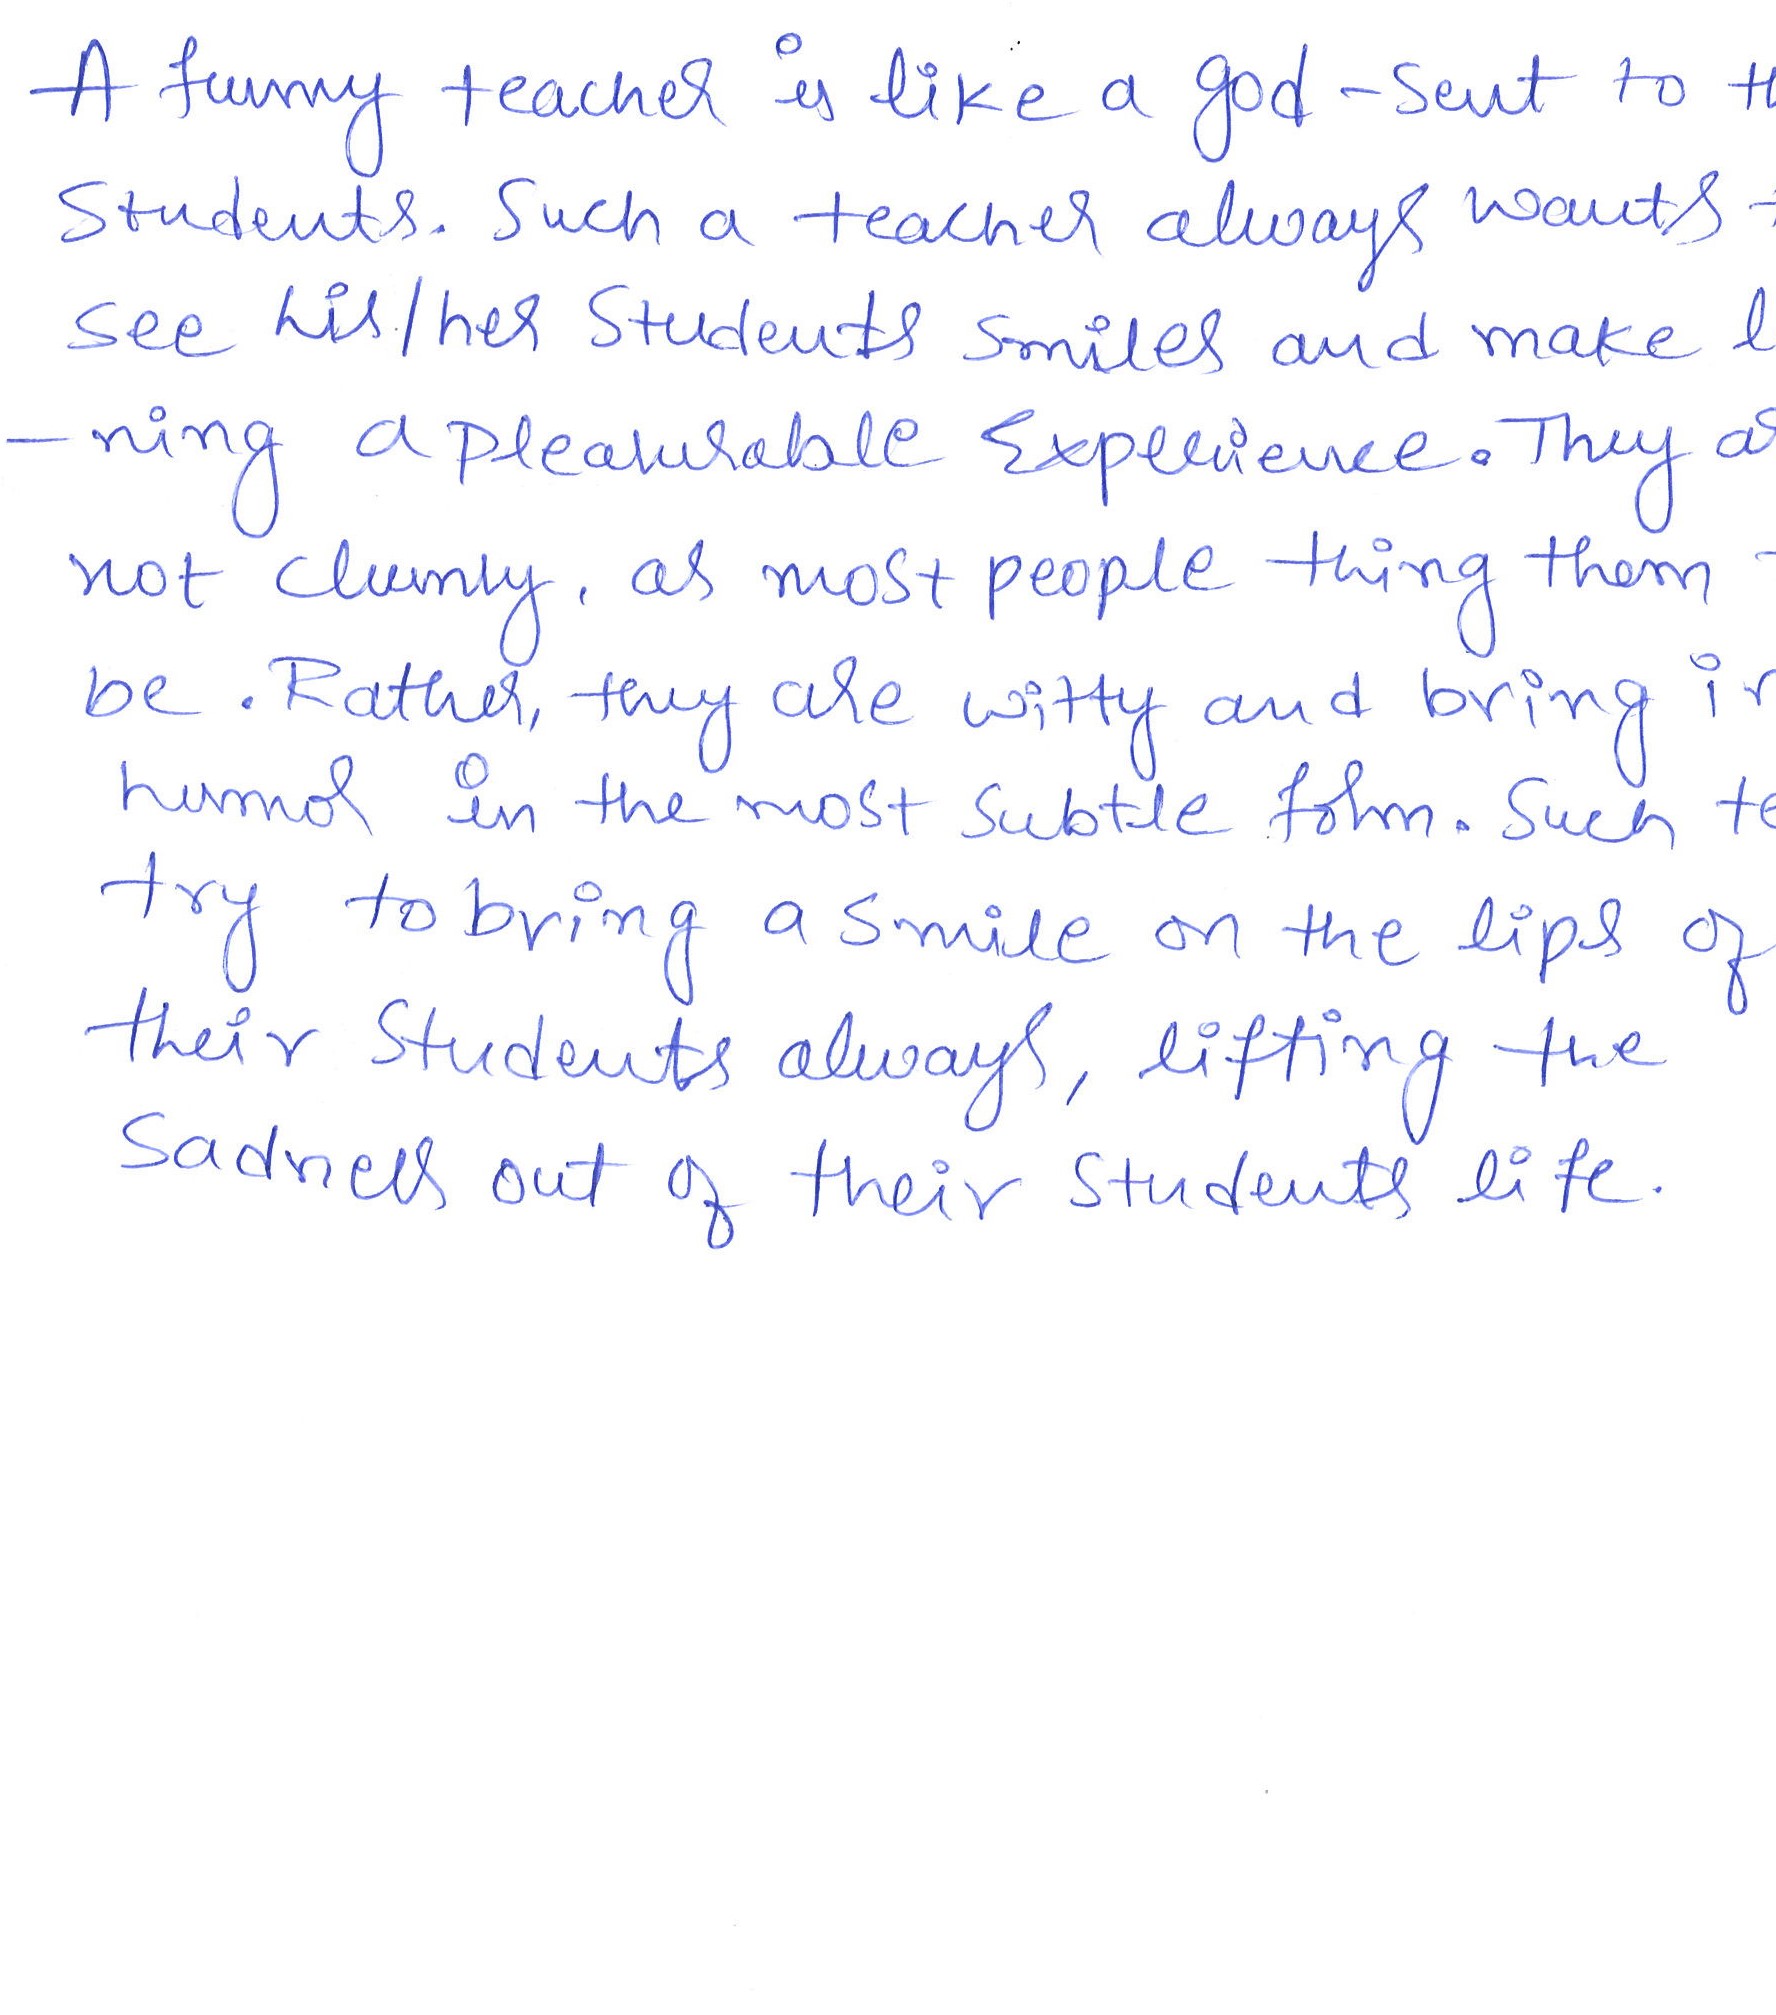 A funny teacher is like a god-sent to th
Students. Such a teacher always wants t
see his/her Students smiles and make l
-ning a pleasurable Experience. They ar
not clumsy, as most people thing them t
be. Rather, they are witty and bring in
humor in the most subtle form. Such te
try to bring a smile on the lips of
their Students always, lifting the
Sadness out of their Students life.